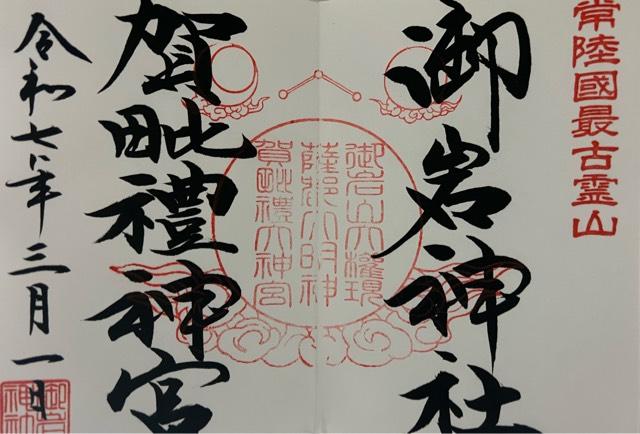 常陸國最古霊山
御岩神社
御岩山大權現
薩都大明神
賀毗禮大神宮
賀毗禮神宮
令和七年三月一日
御岩
神社